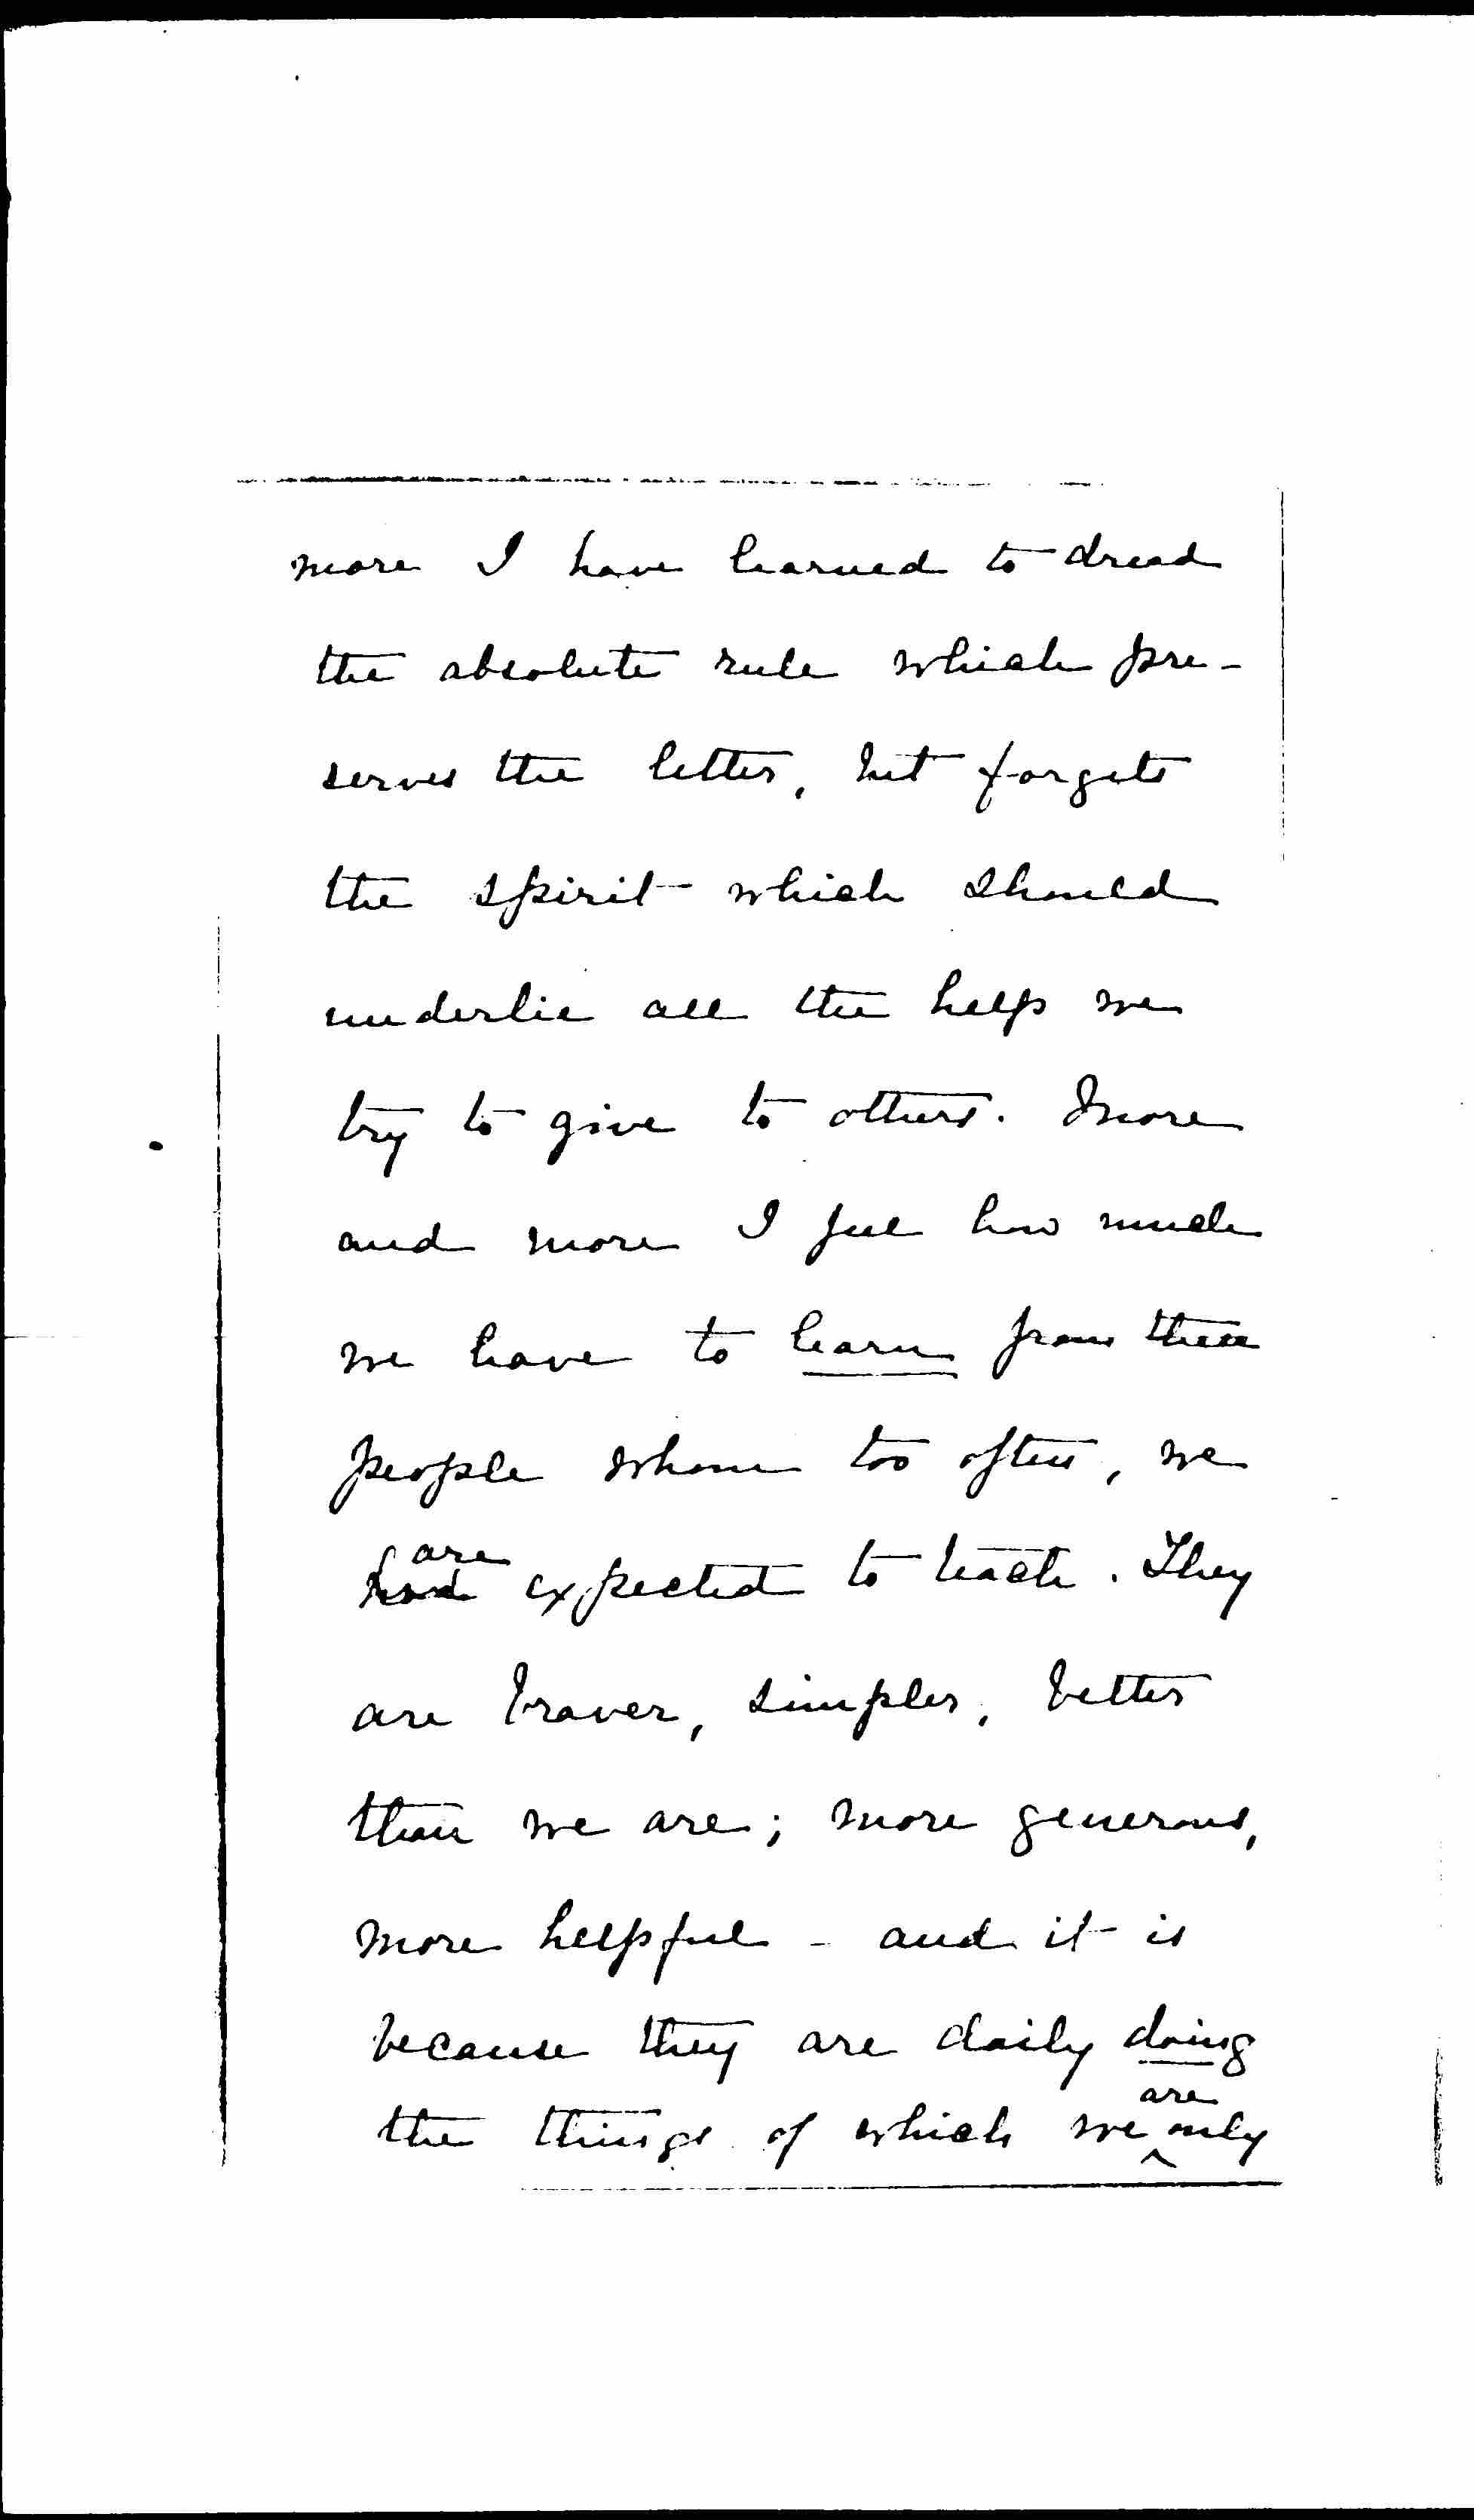 more I have learned to dread
the absolute rule which pre-
serves the letter, but forgets
the spirit which should
underlie all the help we
try to give to others. More
and more I feel how much
we have to learn from these
people whom too often, we
are
had expected to teach. They
are braver, simpler, better
than we are; more generous,
more helpful - and it is
because they are daily doing
are
the things of which we ^ only